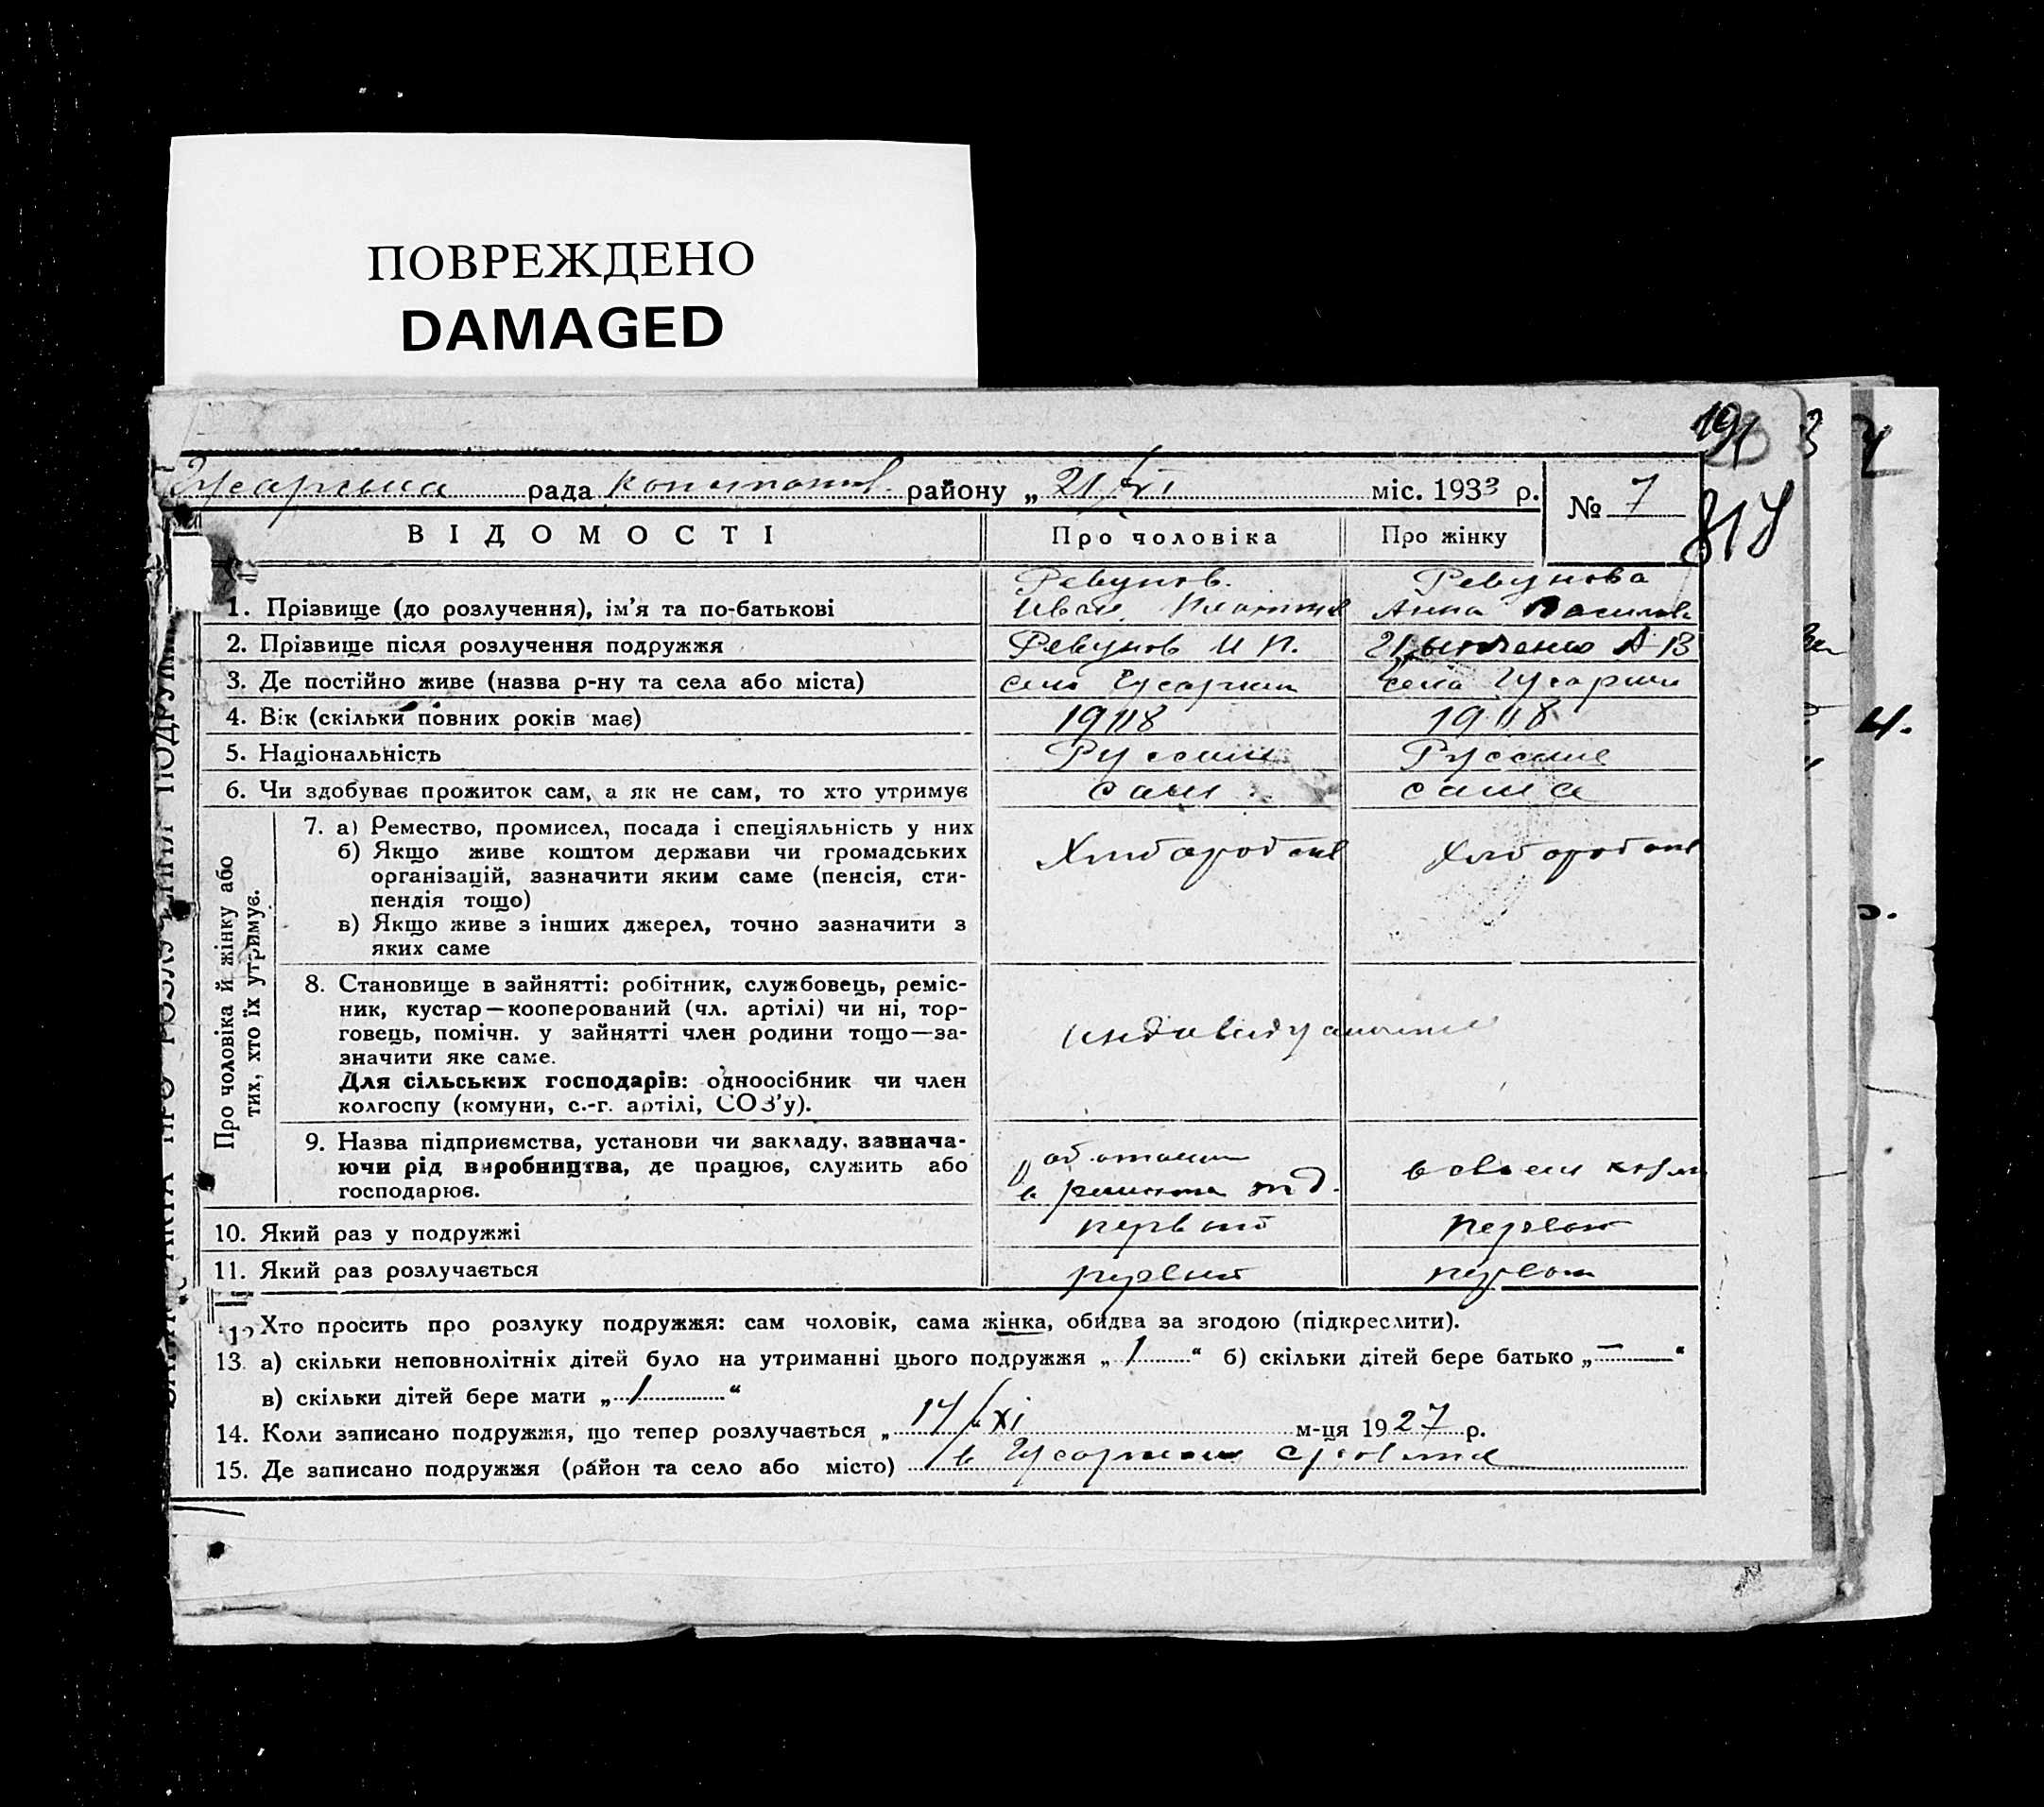 ПОВРЕЖДЕНО
DAMAGED
рада району „ 21/XI міс. 1933 р. № 7
817
ВІДОМОСТІ Про чоловіка Про жінку
Ревунов. Ревунова
1. Прізвище (до розлучення), ім'я та по-батькові Иван Анна
2. Прізвище після розлучення подружжя Ревунов И П. А В
3. Де постійно живе (назва р-ну та села або міста) село села
4. Вік (скільки повних років має)
5. Національність Русские Русские
6. Чи здобуває прожиток сам, а як не сам, то хто утримує сам сама
Про чоловіка й жінку або
тих, хто їх утримує.
7. а) Ремество, промисел, посада і спеціяльність у них
б) Якщо живе коштом держави чи громадських
організацій, зазначити яким саме (пенсія, сти-
пендія тощо)
в) Якщо живе з інших джерел, точно зазначити з
яких саме
8. Становище в зайнятті: робітник, службовець, реміс-
ник, кустар—кооперований (чл. артілі) чи ні, тор-
говець, помічн. у зайнятті член родини тощо—за-
значити яке саме.
Для сільських господарів: одноосібник чи член
колгоспу (комуни, с.-г. артілі, СОЗ'у).
9. Назва підприємства, установи чи закладу, зазнача-
ючи рід виробництва, де працює, служить або в своем
господарює.
10. Який раз у подружжі первый первый
11. Який раз розлучається первый первый
12 Хто просить про розлуку подружжя: сам чоловік, сама жінка, обидва за згодою (підкреслити).
13. а) скільки неповнолітніх дітей було на утриманні цього подружжя „ 1 “ б) скільки дітей бере батько „ — “
в) скільки дітей бере мати „ 1 “
14. Коли записано подружжя, що тепер розлучається „ 17/XI м-ця 1927 р.
15. Де записано подружжя (район та село або місто) в